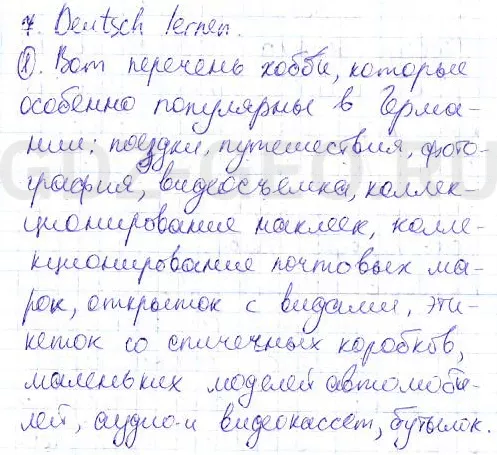 7. Deutsch lernen.
①. Вот перечень хобби, которые
особенно популярны в Герма-
нии: поездки, путешествия, фото-
графия, видеосъемка, коллек-
ционирование наклеек, колле-
кционирование почтовых ма-
рок, открыток с видами, эти-
кеток со спичечных коробков,
маленьких моделей автомоби-
лей, аудио- и видеокассет, бутылок.